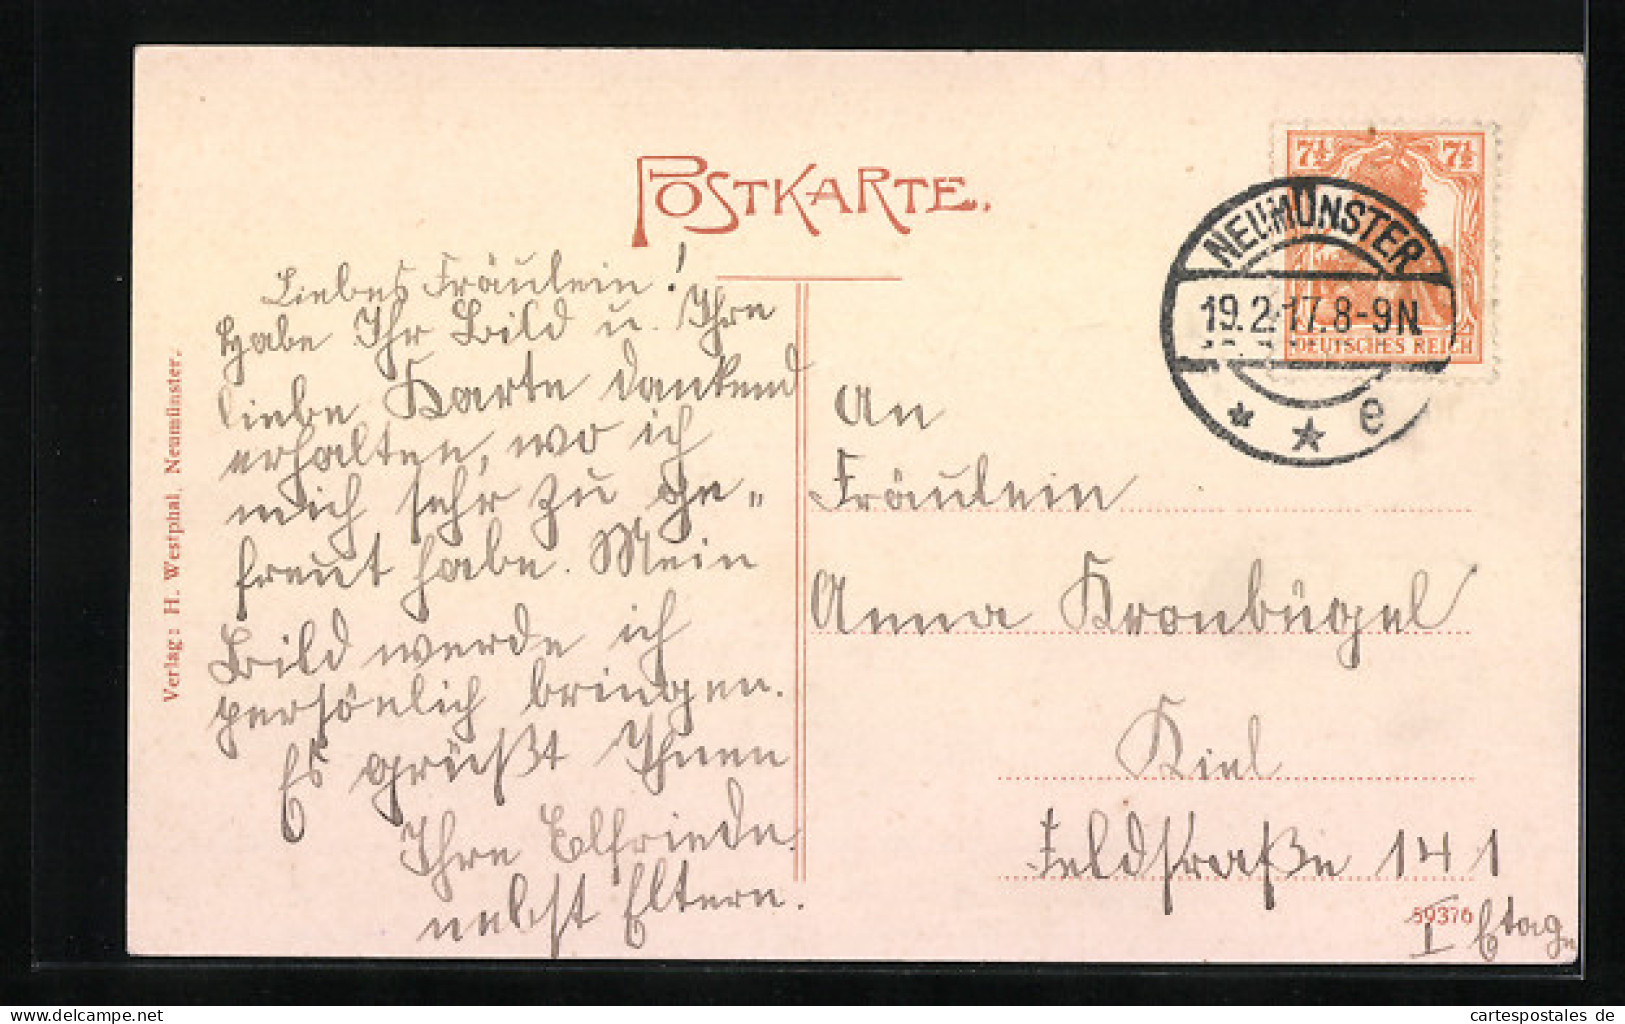 POSTKARTE.
7½ 7½
DEUTSCHES REICH
NEUMÜNSTER
19.2.17.8-9N.
* * e
Verlag: H. Westphal, Neumünster.
Liebes Fräulein!
Habe Ihr Bild u. Ihre
liebe Karte dankend
erhalten, wo ich
mich sehr zu ge=
freut habe. Mein
Bild werde ich
persönlich bringen.
Es grüßt Ihnen
Ihre Elfriede.
nebst Eltern.
An
Fräulein
Anna Kronbügel
Kiel
Feldstraße 141
59376
I Etage
cartespostales de